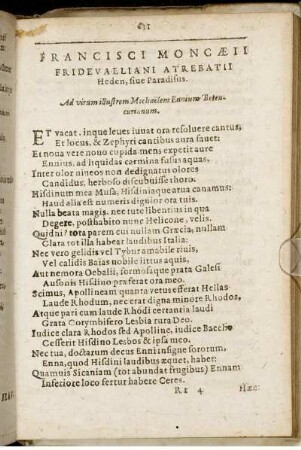 631
FRANCISCI MONCÆII
FRIDEVALLIANI ATREBATII
Heden, siue Paradisus.
Ad virum illustrem Michaelem Ennium Beten-
curianum.
ET vacat, inque leues iuuat ora resoluere cantus,
Et locus, & Zephyri cantibus aura fauet:
Et noua vere nouo cupida mens expetit aure
Ennius, ad liquidas carmina fusus aquas,
Inter olor niueos non dedignatus olores
Candidus, herboso discubuisse thoro.
Hisdinum mea Musa, Hisdiniaque arua canamus:
Haud alia est numeris dignior ora tuis.
Nulla beata magis. nec tute libentius in qua
Degere, posthabito nunc Helicone, velis.
Quidni? tota parem cui nullam Græcia; nullam
Clara tot illa habear laudibus Italia:
Nec vero gelidis vel Tybur amabile riuis,
Vel calidis Baias nobile littus aquis,
Aut nemora Oebalii, formosaque prata Galesi
Ausonis Hisdino præferat ora meo.
Scimus, Apollineam quanta vetus efferat Hellas
Laude Rhodum, nec erat digna minore Rhodos,
Atque pari cum laude Rhodi certantia laudi
Grata Corymbifero Lesbia rura Deo.
Iudice clara Rhodos sed Apolline, iudice Baccho
Cesserit Hisdino Lesbos & ipsa meo.
Nec tua, doctarum decus Enni insigne sororum,
Enna, quod Hisdini laudibus æquet, habet:
Quamuis Sicaniam (tot abundat frugibus) Ennam
Inferiore loco fertur habere Ceres.
Rr 4 Hæc